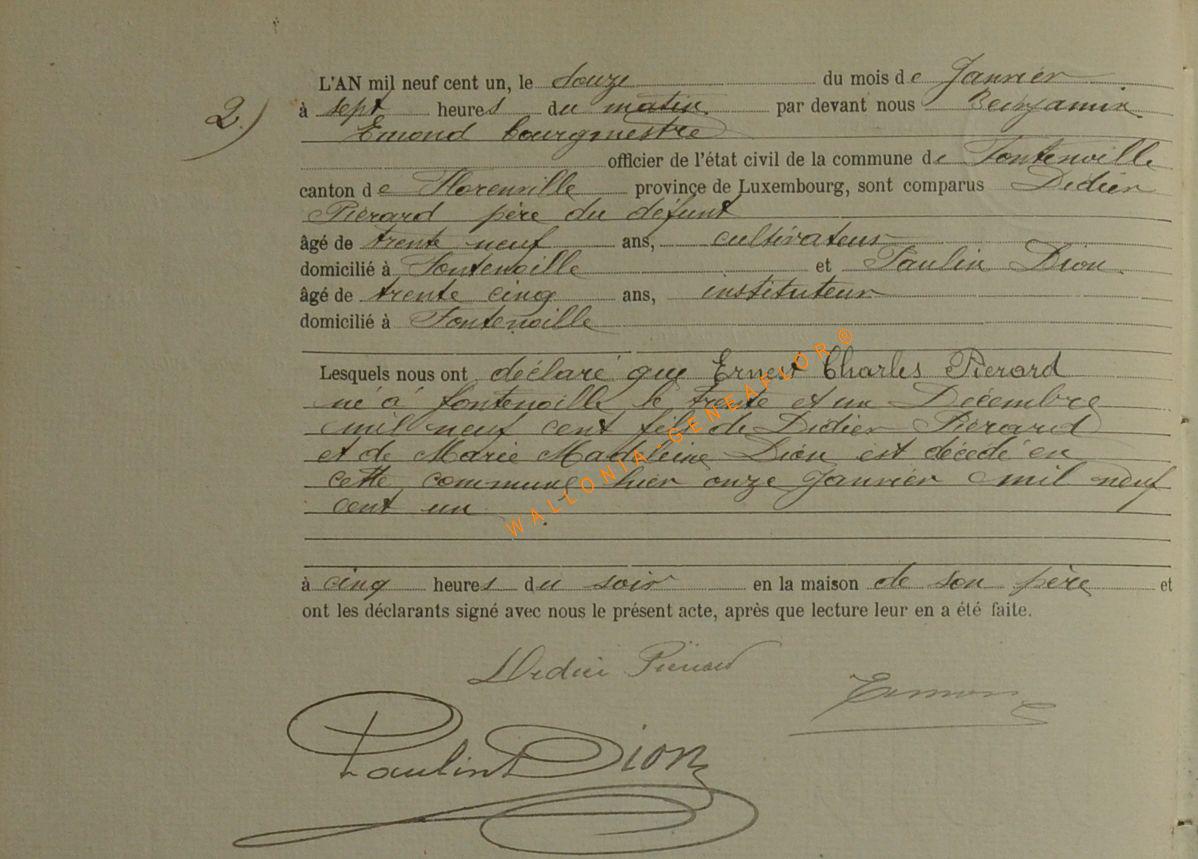 L'AN mil neuf cent un, le douze du mois de Janvier
2.) à sept heures du matin par devant nous Benjamin
Emond bourgmestre
officier de l'état civil de la commune de Fontenoille
canton de Florenville province de Luxembourg, sont comparus Didier
Piérard père du défunt
âgé de trente neuf ans, cultivateur
domicilié à Fontenoille et Paulin Dion
âgé de trente cinq ans, instituteur
domicilié à Fontenoille
Lesquels nous ont déclaré que Ernest Charles Pierard
né à fontenoille le trente et un Décembre
mil neuf cent fils de Didier Piérard
et de Marie Madeleine Dion est décédé en
cette commune hier onze Janvier mil neuf
cent un
WALLONIA-GENEAFLOR©
à cinq heures du soir en la maison de son père et
ont les déclarants signé avec nous le présent acte, après que lecture leur en a été faite.
Didier Piérard
Emond
Paulin Dion